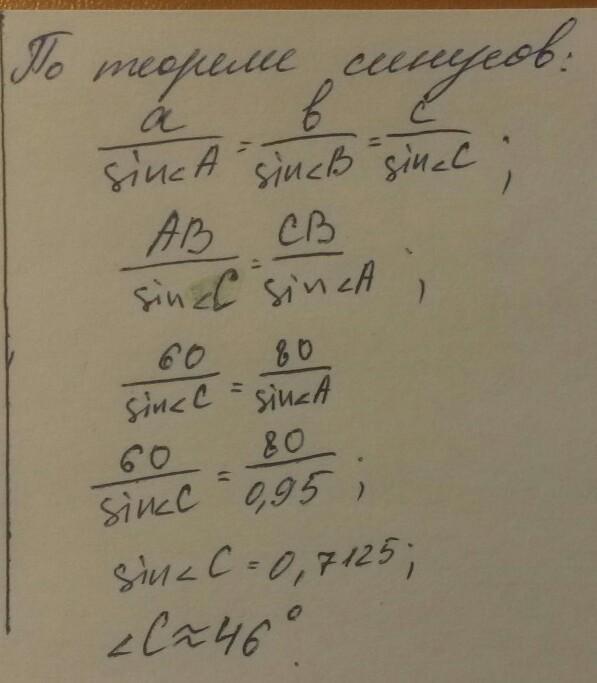 По теореме синусов:
a/sin∠A = b/sin∠B = c/sin∠C ;
AB/sin∠C = CB/sin∠A ;
60/sin∠C = 80/sin∠A
60/sin∠C = 80/0,95 ;
sin∠C = 0,7125;
∠C ≈ 46°.